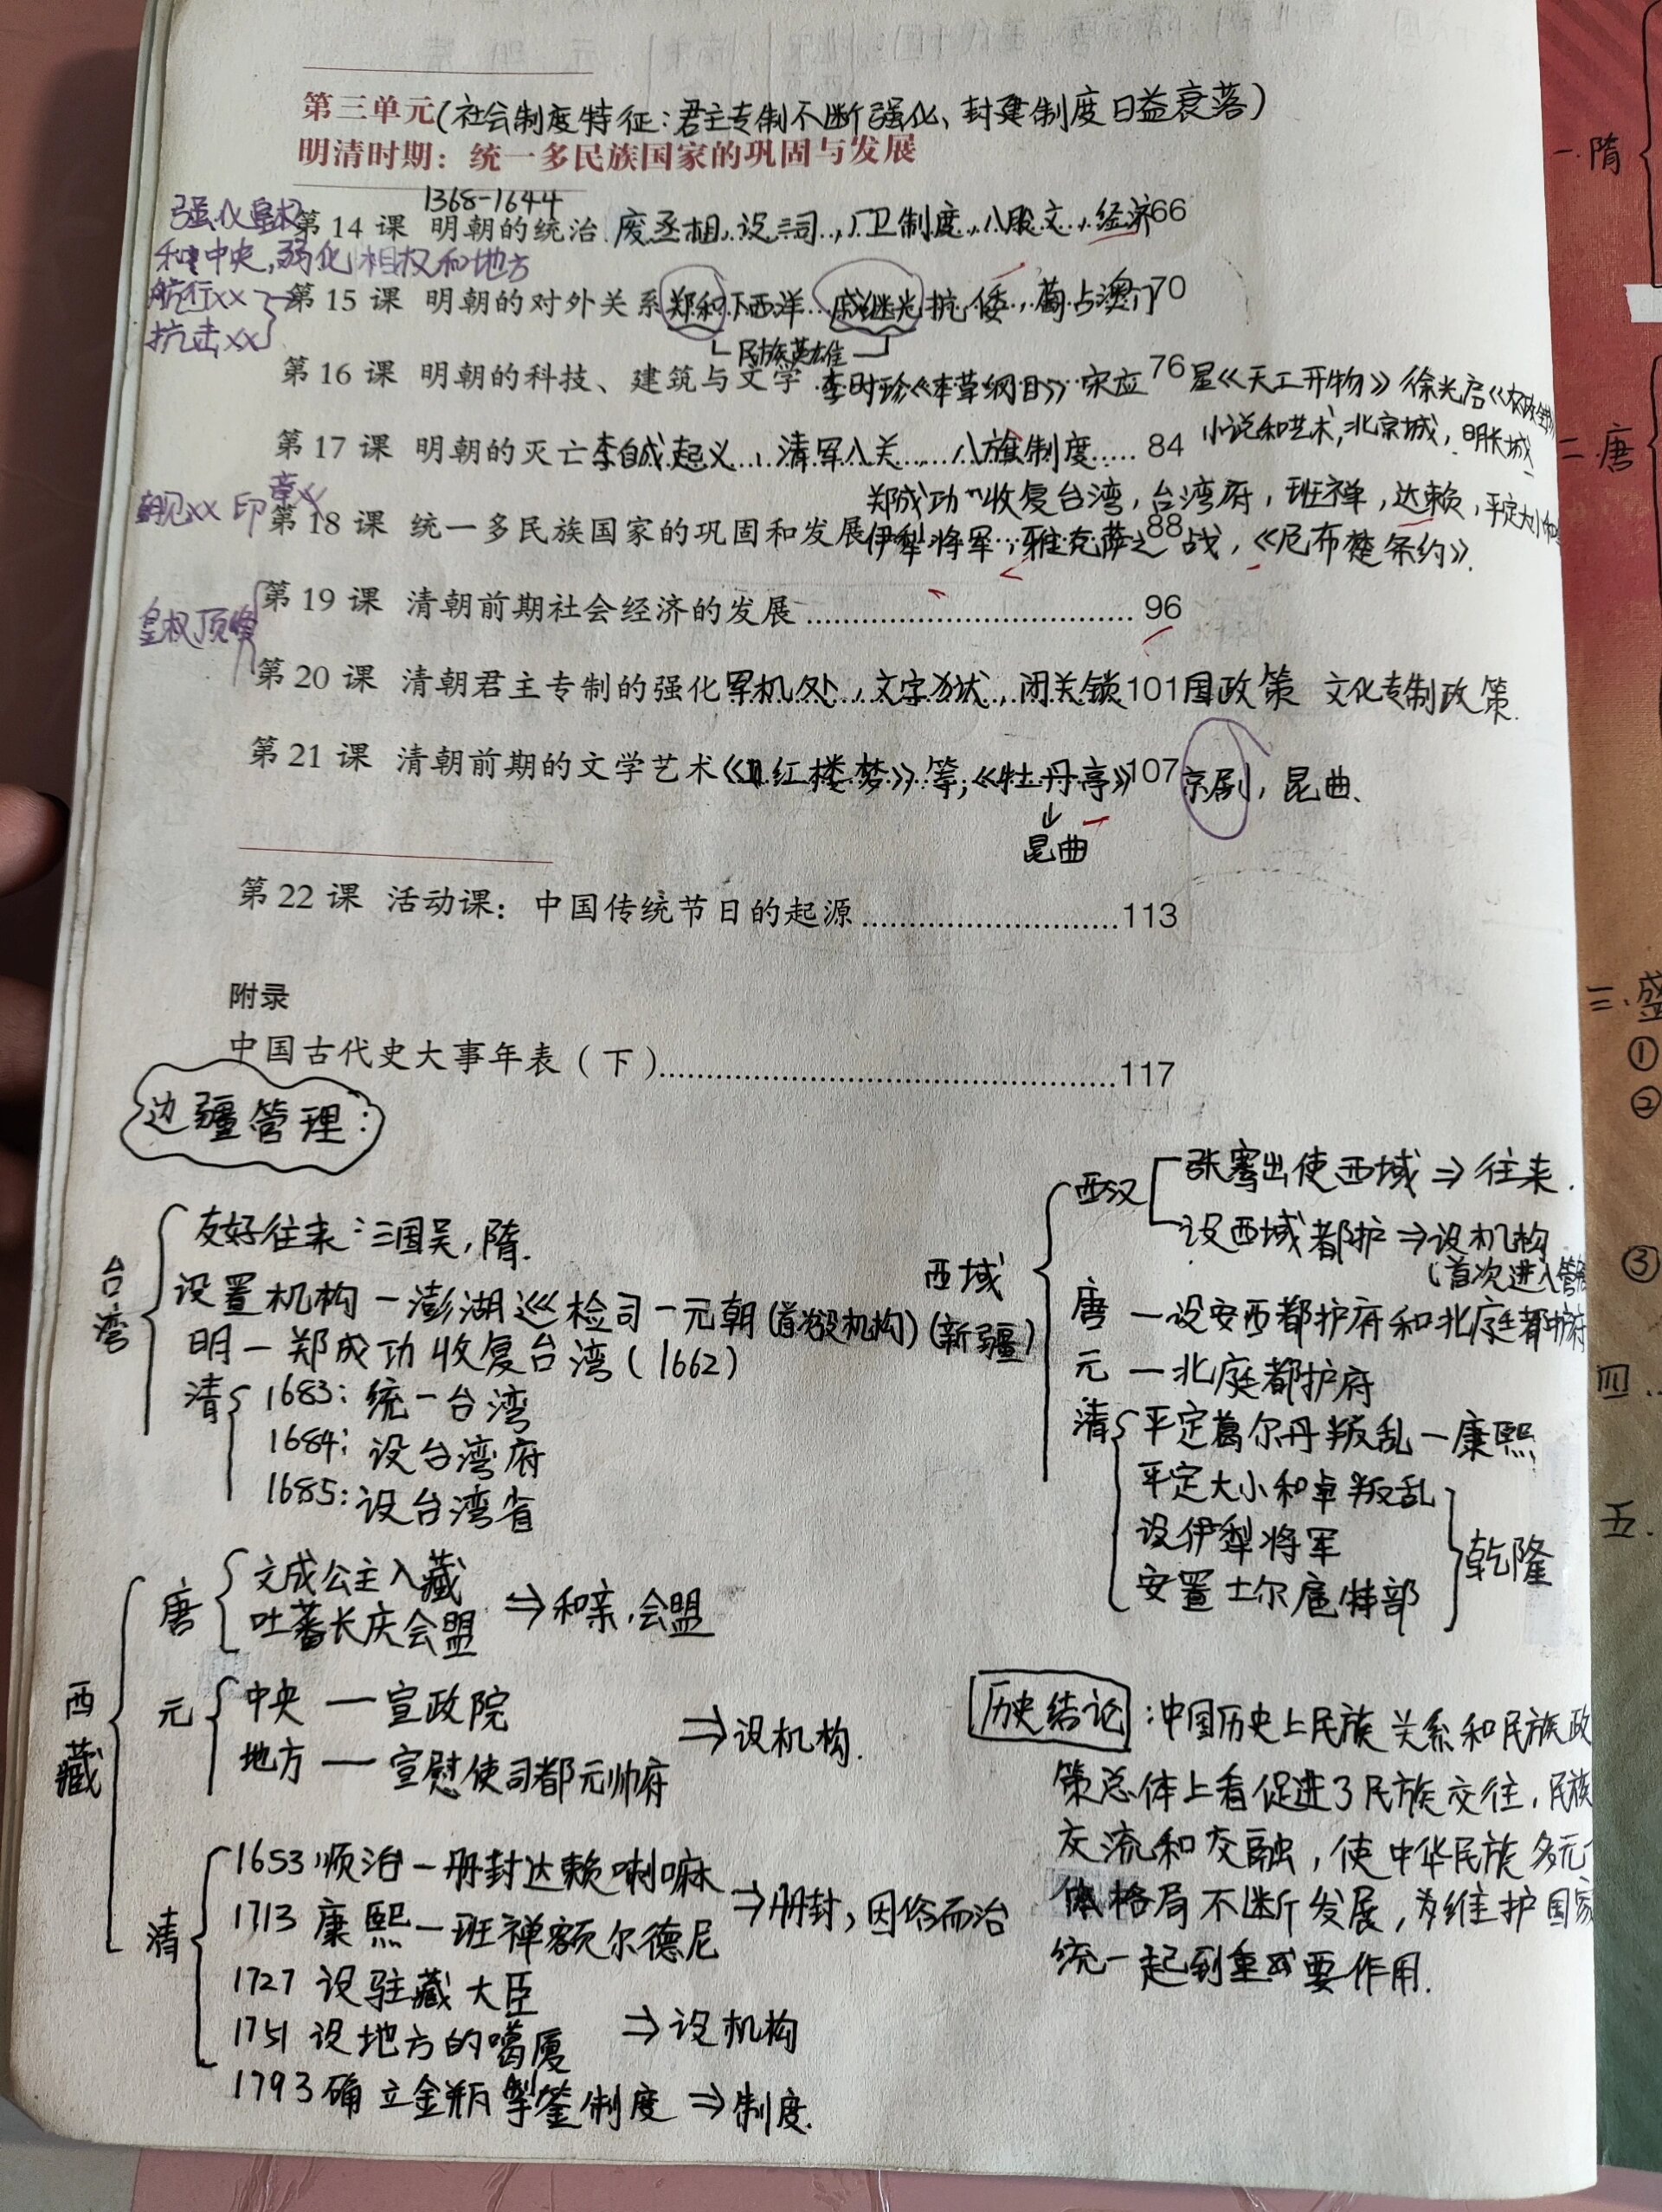 第三单元(社会制度特征:君主专制不断强化、封建制度日益衰落)
明清时期：统一多民族国家的巩固与发展
1368-1644
强化皇权
第 14 课 明朝的统治 废丞相,设三司,厂卫制度,八股文,经济66
和中央,弱化相权和地方
航行xx
第 15 课 明朝的对外关系 郑和下西洋 戚继光抗倭,葡占澳门70
抗击xx
民族英雄
第 16 课 明朝的科技、建筑与文学 李时珍《本草纲目》宋应76星《天工开物》徐光启《农政全书》
小说和艺术,北京城,明长城
第 17 课 明朝的灭亡 李自成起义,清军入关,八旗制度.....84
郑成功收复台湾,台湾府,班禅,达赖,平定大小和
朝见xx 印章xx
第 18 课 统一多民族国家的巩固和发展 88
伊犁将军,雅克萨之战,《尼布楚条约》.
第 19 课 清朝前期社会经济的发展..................96
皇权顶峰
第 20 课 清朝君主专制的强化 军机处,文字狱,闭关锁101国政策 文化专制政策.
第 21 课 清朝前期的文学艺术《红楼梦》等,《牡丹亭》107京剧,昆曲、
↓
昆曲
第 22 课 活动课：中国传统节日的起源..................113
附录
中国古代史大事年表（下）..................117
边疆管理:
台湾
友好往来:三国吴,隋.
设置机构—澎湖巡检司—元朝(首次设机构)
明—郑成功收复台湾(1662)
清
1683:统一台湾
1684:设台湾府
1685:设台湾省
西藏
唐
文成公主入藏
吐蕃长庆会盟
⇒和亲,会盟
元
中央—宣政院
地方—宣慰使司都元帅府
⇒设机构.
清
1653顺治—册封达赖喇嘛
1713康熙—班禅额尔德尼
⇒册封,因俗而治
1727设驻藏大臣
1751设地方的噶厦
⇒设机构
1793确立金瓶掣签制度⇒制度.
西域
(新疆)
西汉
张骞出使西域⇒往来.
设西域都护⇒设机构
(首次进入管辖
唐—设安西都护府和北庭都护府
元—北庭都护府
清
平定葛尔丹叛乱—康熙
平定大小和卓叛乱
设伊犁将军
安置土尔扈特部
乾隆
历史结论:中国历史上民族关系和民族政
策总体上看促进了民族交往,民族
交流和交融,使中华民族多元一
体格局不断发展,为维护国家
统一起到重要作用.
一.隋
二.唐
三.盛
①
②
③
四.
五.